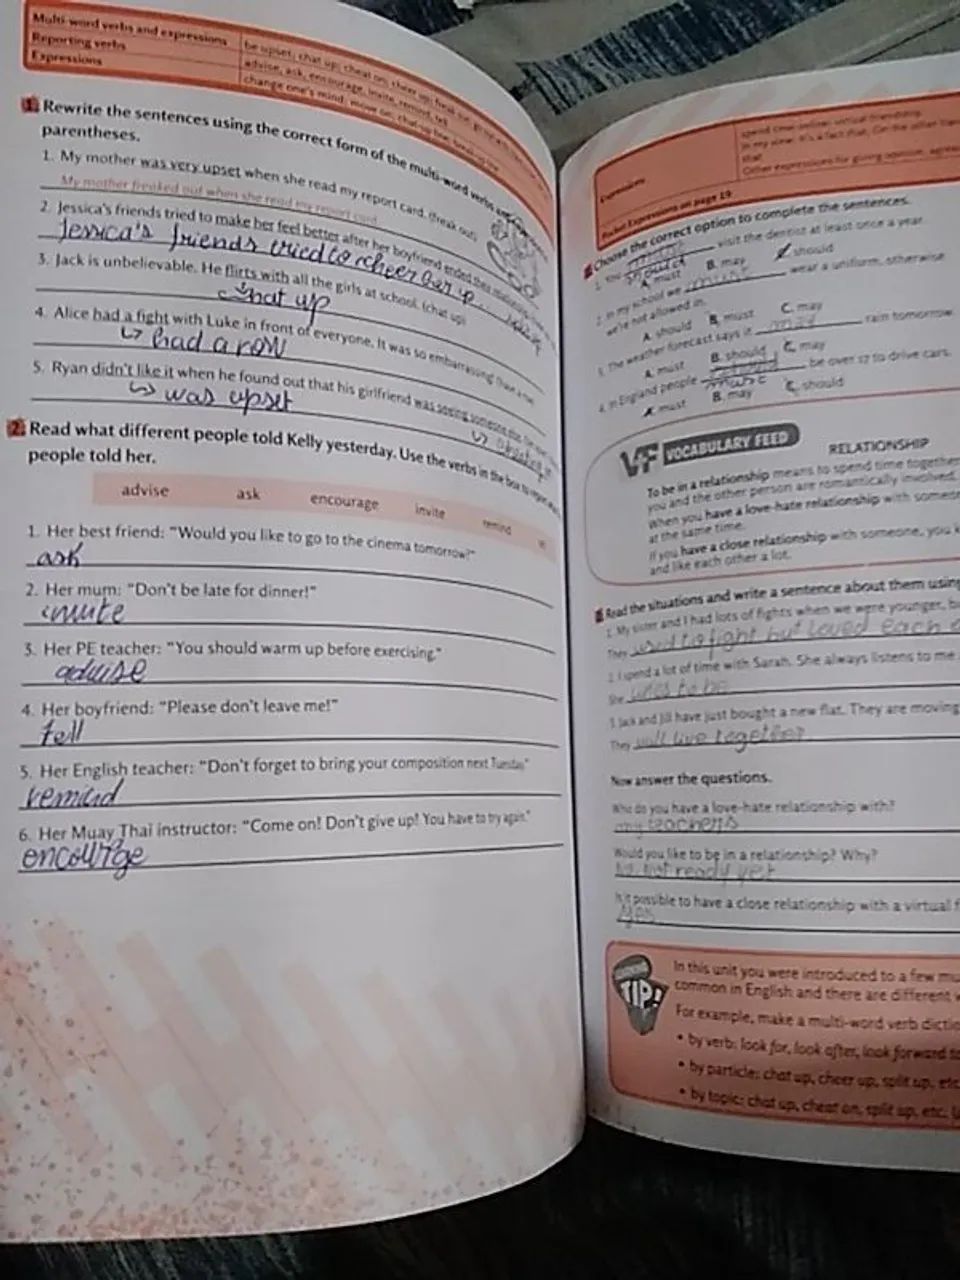 Multi-word verbs and expressions
Reporting verbs
Expressions
be upset; chat up; cheat on; cheer up; freak out;
advise, ask, encourage, invite, remind, tell
change one's mind; move on; chat-up line;
1. Rewrite the sentences using the correct form of the multi-word verbs
parentheses.
1. My mother was very upset when she read my report card. (freak out)
My mother freaked out when she read my report card
2. Jessica's friends tried to make her feel better after her boyfriend ended their
Jessica's friends tried to cheer her up
3. Jack is unbelievable. He flirts with all the girls at school. (chat up)
chat up
4. Alice had a fight with Luke in front of everyone. It was so embarrassing!
had a row
5. Ryan didn't like it when he found out that his girlfriend was seeing someone else.
was upset
2. Read what different people told Kelly yesterday. Use the verbs in the box to report what
people told her.
advise ask encourage invite remind
1. Her best friend: "Would you like to go to the cinema tomorrow?"
ask
2. Her mum: "Don't be late for dinner!"
invite
3. Her PE teacher: "You should warm up before exercising."
advise
4. Her boyfriend: "Please don't leave me!"
tell
5. Her English teacher: "Don't forget to bring your composition next Tuesday"
remind
6. Her Muay Thai instructor: "Come on! Don't give up! You have to try again."
encourge
Expressions
spend time online; virtual friendship
In my view; It's a fact that; On the other
that
Other expressions for giving opinion,
Pocket Expressions on page 19
Choose the correct option to complete the sentences.
1. You should visit the dentist at least once a year.
A. must B. may should
2. In my school we must wear a uniform, otherwise
we're not allowed in.
A. should B. must C. may
3. The weather forecast says it may rain tomorrow.
A. must B. should C. may
4. In England people must be over 17 to drive cars.
A. must B. may C. should
VF VOCABULARY FEED RELATIONSHIP
To be in a relationship means to spend time together
you and the other person are romantically involved.
When you have a love-hate relationship with someone
at the same time.
If you have a close relationship with someone, you
and like each other a lot.
Read the situations and write a sentence about them using
1. My sister and I had lots of fights when we were younger,
They used to fight but loved each
2. I spend a lot of time with Sarah. She always listens to me
She
3. Jack and Jill have just bought a new flat. They are moving
They will live together
Now answer the questions.
Who do you have a love-hate relationship with?
my teachers
Would you like to be in a relationship? Why?
not ready yet
Is it possible to have a close relationship with a virtual
yes
TIP!
In this unit you were introduced to a few
common in English and there are different
For example, make a multi-word verb
• by verb: look for, look after, look forward to
• by particle: chat up, cheer up, split up, etc.
• by topic: chat up, cheat on, split up, etc.